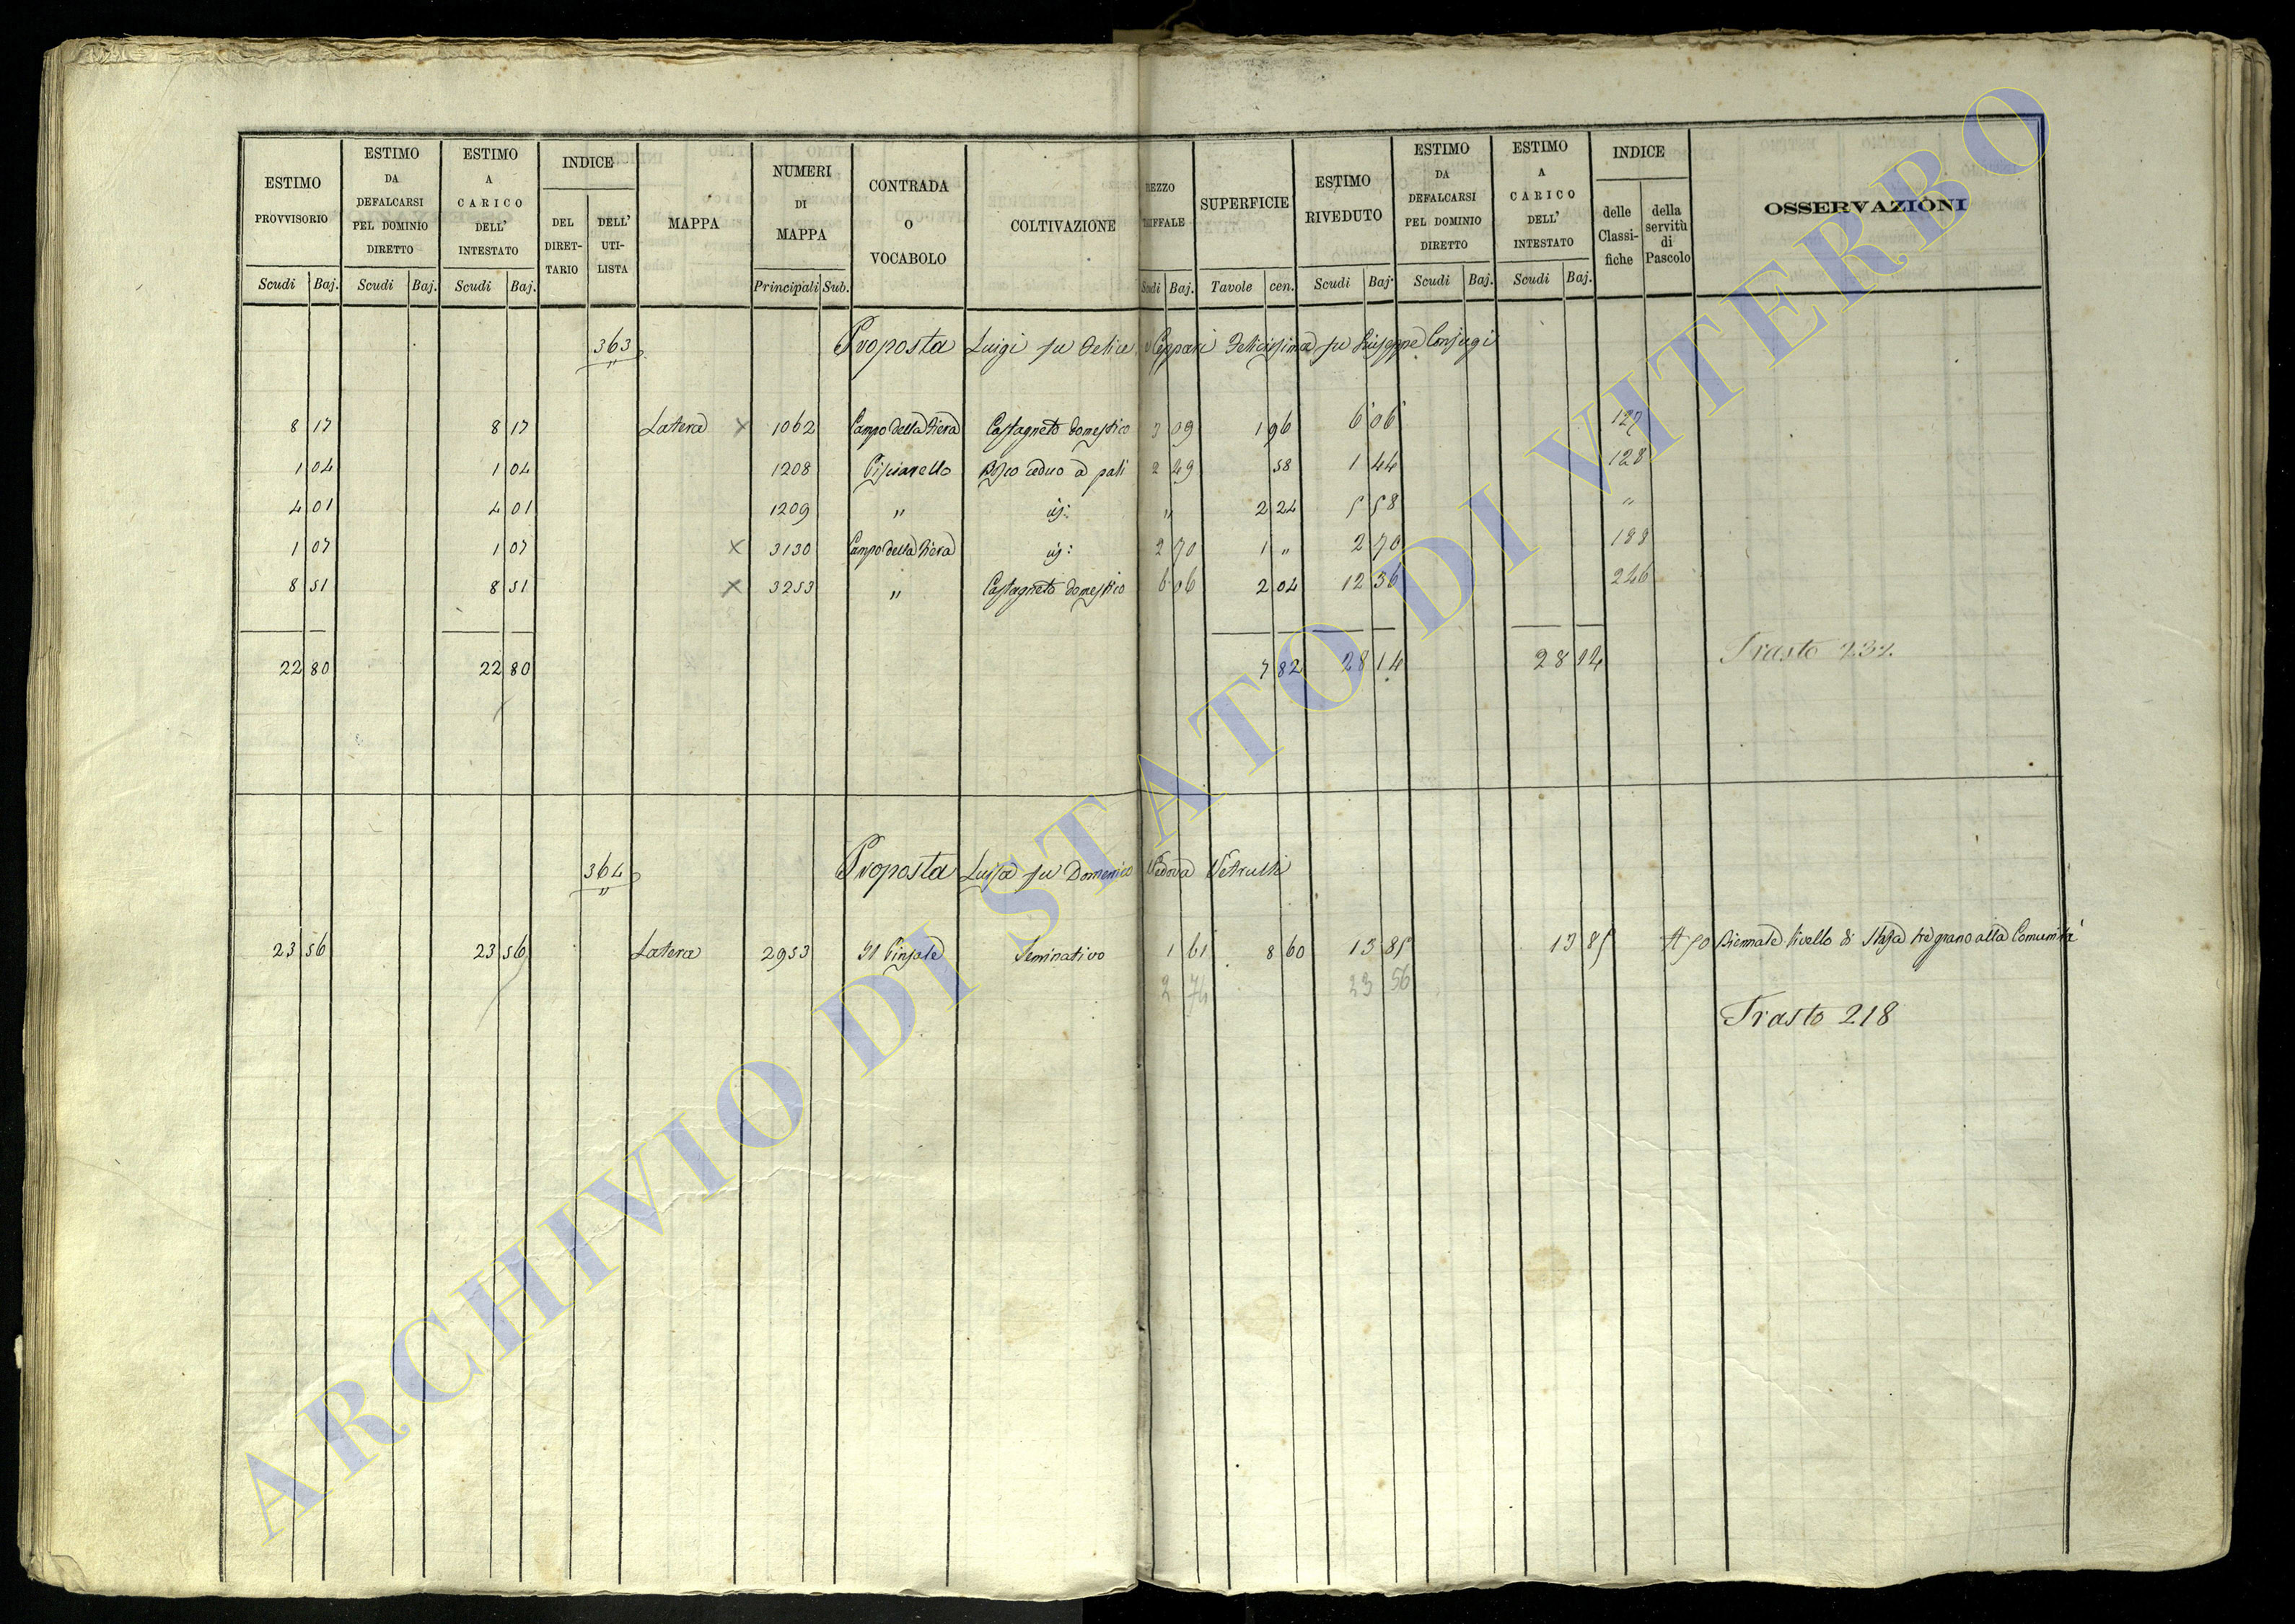 ESTIMO PROVVISORIO | ESTIMO DA DEFALCARSI PEL DOMINIO DIRETTO | ESTIMO A CARICO DELL' INTESTATO | INDICE | MAPPA | NUMERI DI MAPPA | CONTRADA O VOCABOLO | COLTIVAZIONE | REZZO RIFFALE | SUPERFICIE | ESTIMO RIVEDUTO | ESTIMO DA DEFALCARSI PEL DOMINIO DIRETTO | ESTIMO A CARICO DELL' INTESTATO | INDICE | OSSERVAZIONI
DEL DIRETTARIO | DELL' UTILISTA | delle Classifiche | della servitù di Pascolo
Scudi | Baj. | Scudi | Baj. | Scudi | Baj. | Principali | Sub. | Scudi | Baj. | Tavole | cen. | Scudi | Baj. | Scudi | Baj. | Scudi | Baj.
363 Proposta Luigi fu Felice e Ceppari Felicissima fu Giuseppe Conjugi
8 17 | 8 17 | Latera × | 1062 | Campo della Fiera | Castagneto domestico | 3 09 | 1 96 | 6 06 | 127
1 04 | 1 04 | 1208 | Pisciarello | Bosco ceduo a pali | 2 49 | 58 | 1 44 | 128
4 01 | 4 01 | 1209 | " | id: | " | 2 24 | 5 58 | "
1 07 | 1 07 | × | 3130 | Campo della Fiera | id: | 2 70 | 1 " | 2 70 | 188
8 51 | 8 51 | × | 3253 | " | Castagneto domestico | 6 06 | 2 04 | 12 36 | 246
22 80 | 22 80 | 7 82 | 28 14 | 28 14 | Trasto 232
364 Proposta Luisa fu Domenico Vedova Vetrulli
23 56 | 23 56 | Latera | 2953 | Il Pinzale | Seminativo | 1 61 | 8 60 | 13 85 | 13 85 | 450 | Biennale livello di Staja tre grano alla Comunità
2 74 | 23 56
Trasto 218
ARCHIVIO DI STATO DI VITERBO